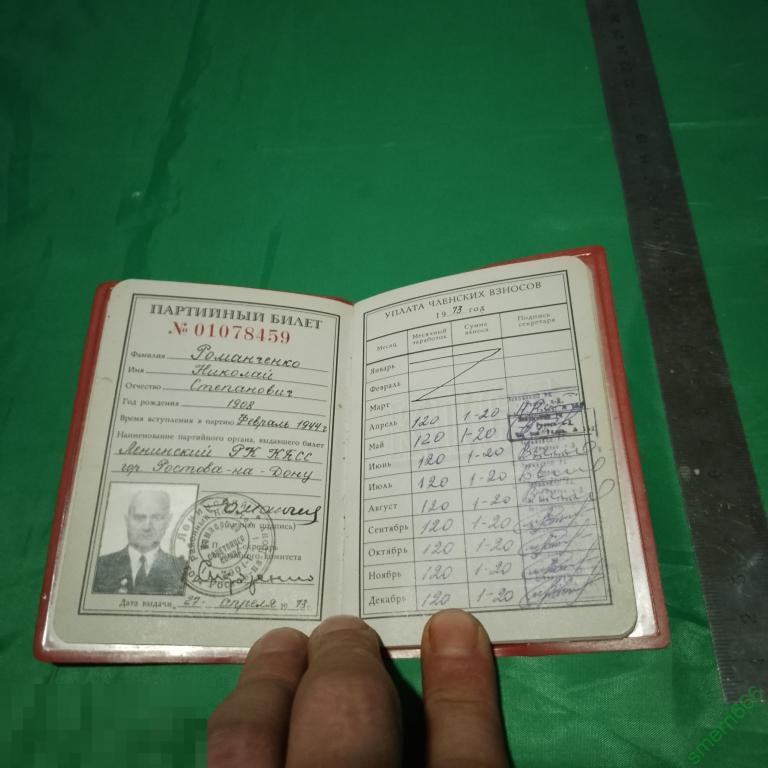 ПАРТИЙНЫЙ БИЛЕТ
№ 01078459
Фамилия Романченко
Имя Николай
Отчество Степанович
Год рождения 1908
Время вступления в партию Февраль 1944 г
Наименование партийного органа, выдавшего билет
Ленинский РК КПСС
гор. Ростова-на-Дону
подпись)
Секретарь
комитета
Дата выдачи „27“ апреля 1973 г.
УПЛАТА ЧЛЕНСКИХ ВЗНОСОВ
1973 год
Месяц Месячный заработок Сумма взноса Подпись секретаря
Январь
Февраль
Март
Апрель 120 1-20
Май 120 1-20
Июнь 120 1-20
Июль 120 1-20
Август 120 1-20
Сентябрь 120 1-20
Октябрь 120 1-20
Ноябрь 120 1-20
Декабрь 120 1-20
smern666